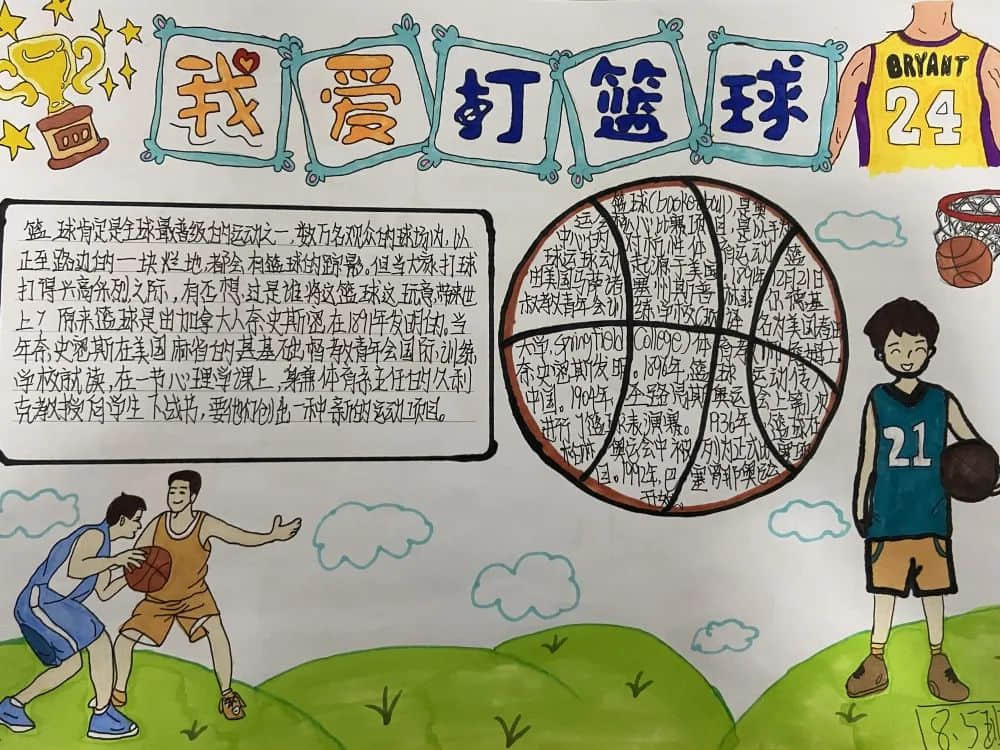 我爱打篮球
BRYANT
24
篮球肯定是全球最普级的运动之一,数万名观众的球场内,以
正至路边的一块烂地,都会有篮球的踪影。但当大家打球
打得兴高采烈之际,有否想过是谁将这篮球这玩意带来世
上?原来篮球是由加拿大人奈史斯密在1891年发明的。当
年奈史密斯在美国麻省的基基础督教青年会国际训练
学校就读,在一节心理学课上,身兼体育系主任的久利
克教授向学生下战书,要他们创出一种新的运动项目。
篮球是奥
运会核心比赛项目,是以手为
中心的对抗性体育运动
球运动起源于美国。1891年12月21日
由美国马萨诸塞州斯普林菲尔德基
叔教青年会训练学校体
大学,Springfield College)体育
奈史密斯发明。1896年,篮球运动传入
中国。1904年,圣路易斯奥运会上第1次
进行了篮球表演赛。1936年,篮球在
柏林奥运会中被列为正式比赛项
目。1992年,巴塞罗那奥运会
开始。
21
8.5